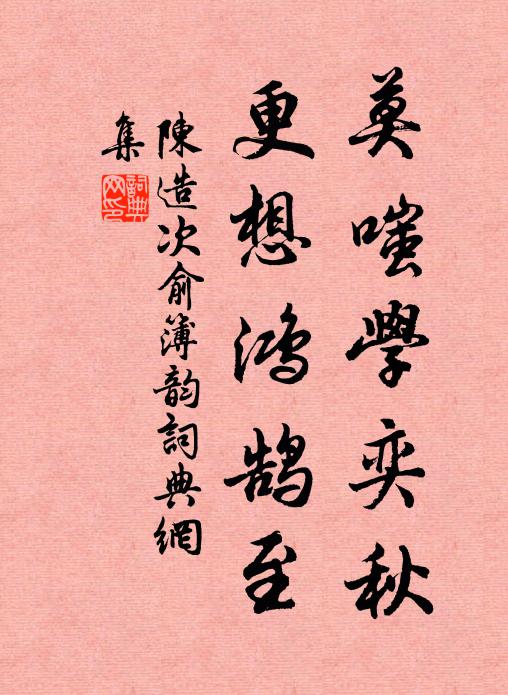 莫嗤學奕秋
更想鴻鵠至
陳造次俞簿韵詞典網
集
詞典
网印